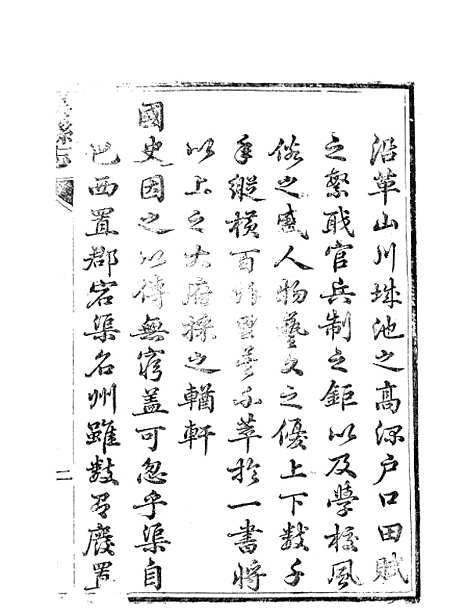 沿革山川城池之高深户口田賦
之繁職官兵制之鉅以及學校風
俗之盛人物藝文之優上下數千
年縱横百里無不萃於一書將
以上之大府採之輶軒
國史因之以傳無窮蓋可忽乎渠自
巴西置郡宕渠名州雖數有廢置
縣志
二